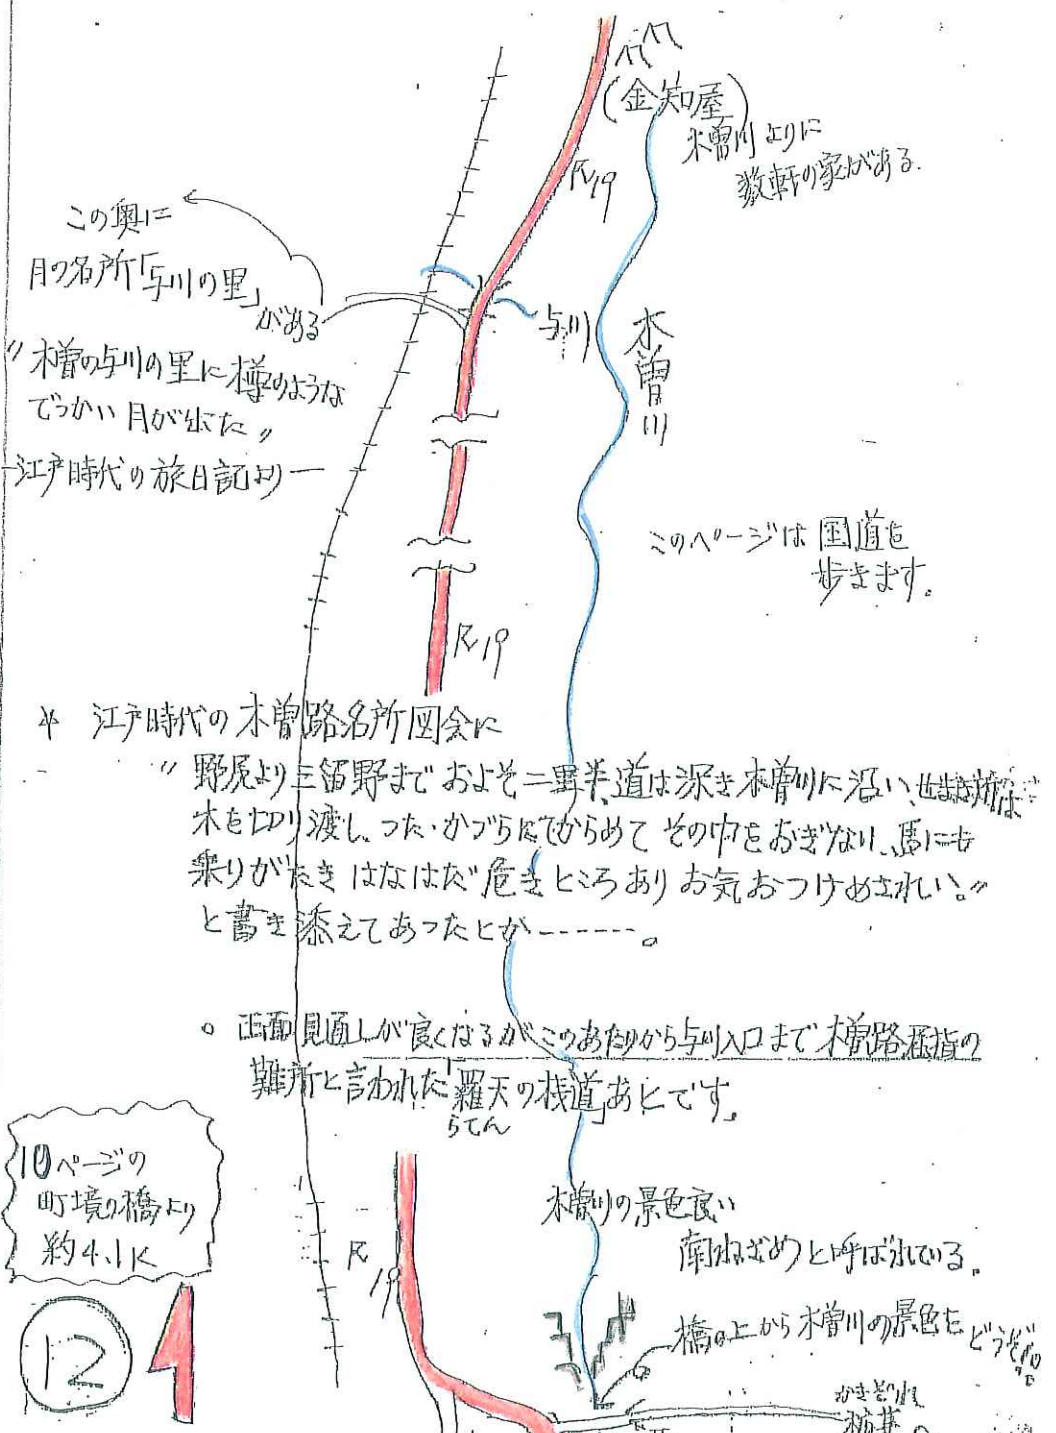 (金知屋)
木曽川よりに
数軒の家がある.
R19
この奥に
月の名所「与川の里」
がある
与川
木曽川
〃木曽の与川の里に樽のような
でっかい月が出た〃
―江戸時代の旅日記より―
このページは国道を
歩きます。
R19
江戸時代の木曽路名所図会に
〃野尻より三留野までおよそ二里半、道は深き木曽川に沿い、
木を切り渡し、つた・かづらにてからめてその中をおぎない、馬にも
乗りがたきはなはだ危きところありお気おつけめされい。〃
と書き添えてあったとか------。
○ 正面見通しが良くなるがこのあたりから与川入口まで木曽路屈指の
難所と言われた「羅天の桟道」あとです。
らてん
10ページの
町境の橋より
約4.1K
木曽川の景色良い
南ねざめと呼ばれている。
R19
橋の上から木曽川の景色を
どうぞ
12
かきぞれ
柿其